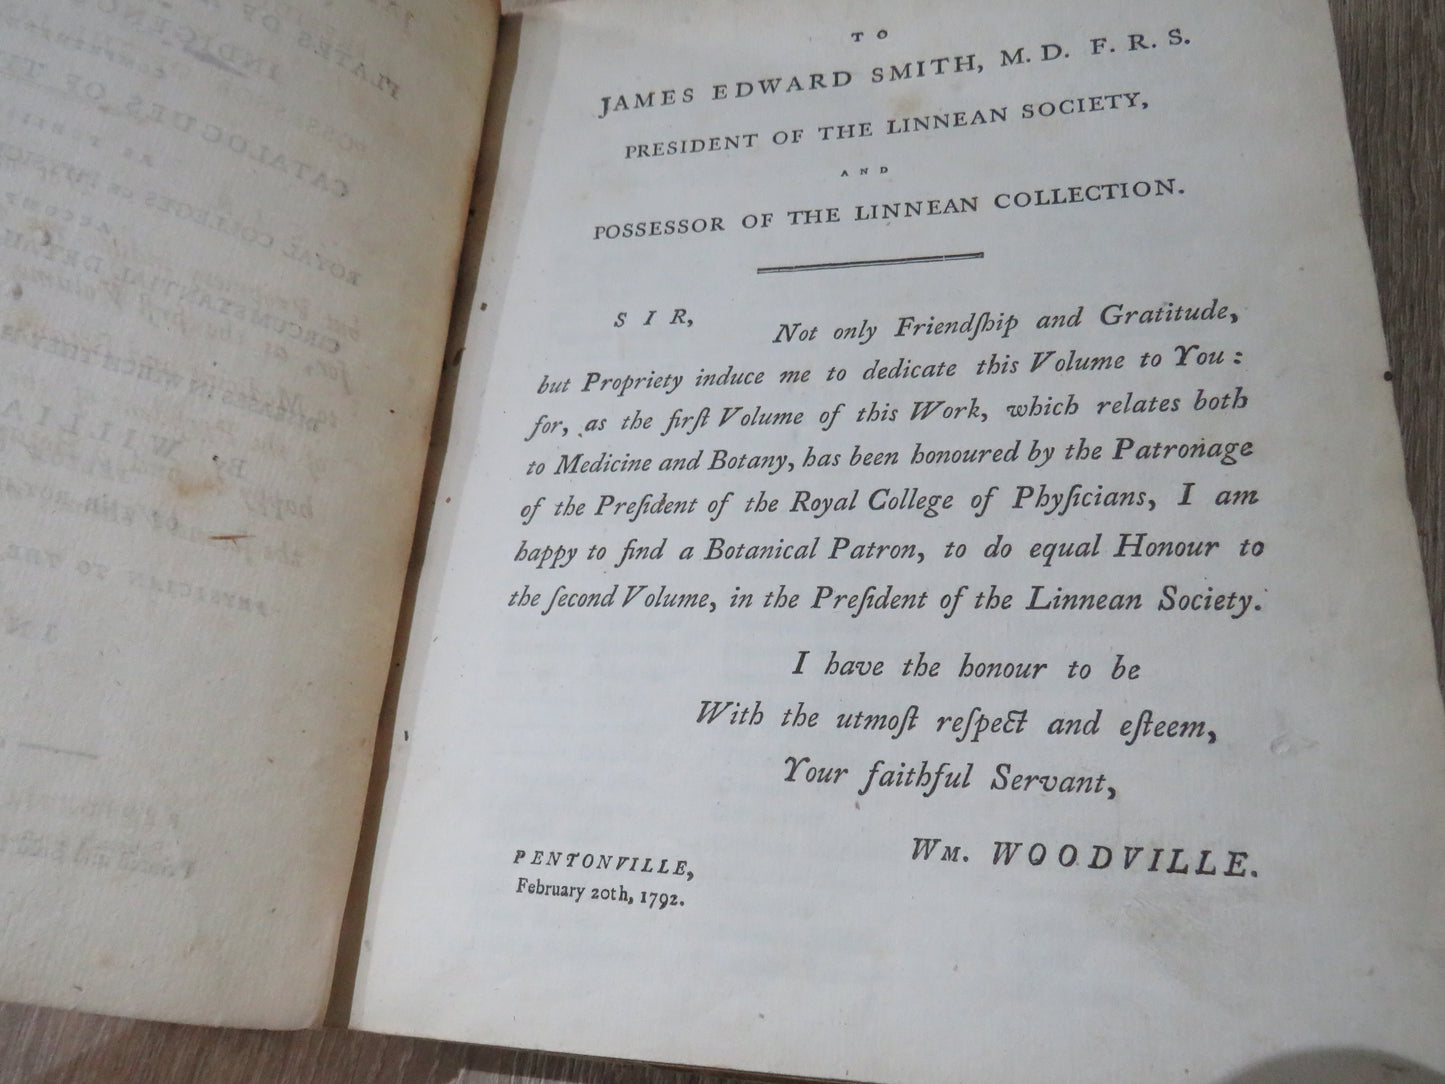 TO
JAMES EDWARD SMITH, M. D. F. R. S.
PRESIDENT OF THE LINNEAN SOCIETY,
AND
POSSESSOR OF THE LINNEAN COLLECTION.
SIR,
Not only Friendſhip and Gratitude,
but Propriety induce me to dedicate this Volume to You:
for, as the firſt Volume of this Work, which relates both
to Medicine and Botany, has been honoured by the Patronage
of the Preſident of the Royal College of Phyſicians, I am
happy to find a Botanical Patron, to do equal Honour to
the ſecond Volume, in the Preſident of the Linnean Society.
I have the honour to be
With the utmoſt reſpect and eſteem,
Your faithful Servant,
WM. WOODVILLE.
PENTONVILLE,
February 20th, 1792.